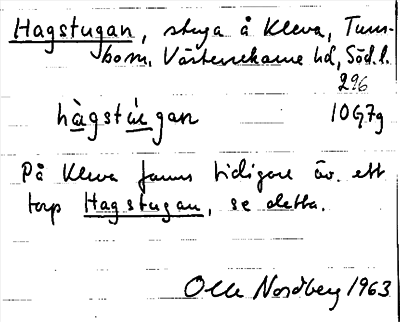 Hagstugan, stuga å Kleva, Tum-
bom, Västerrekarne hd, Söd. l.
296
hàgstúgan 10G7g
På Kleva fanns tidigare äv. ett
torp Hagstugan, se detta.
Olle Nordberg 1963